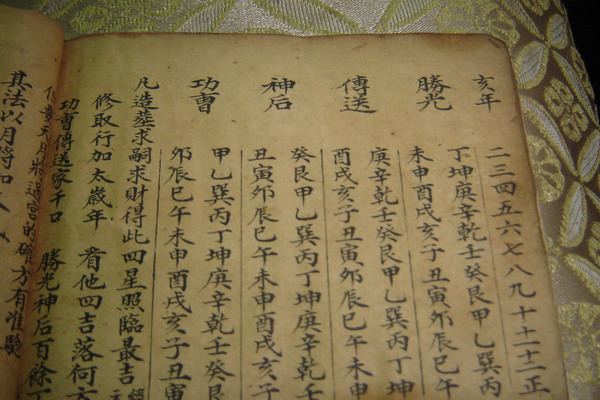 亥年 二三四五六七八九十十一十二正
勝光 丁坤庚辛乾壬癸艮甲乙巽丙
未申酉戌亥子丑寅夘辰巳午
傳送 庚辛乾壬癸艮甲乙巽丙丁坤
酉戌亥子丑寅夘辰巳午未申
神后 癸艮甲乙巽丙丁坤庚辛乾壬
丑寅夘辰巳午未申酉戌亥子
功曹 甲乙巽丙丁坤庚辛乾壬癸艮
夘辰巳午未申酉戌亥子丑寅
凡造塟求嗣求財得此四星照臨最吉
修取行加太歲年 看他四吉落何
功曹傳送家千口 勝光神后百餘丁
天月將過宮的確方有准驗
其法以月將加